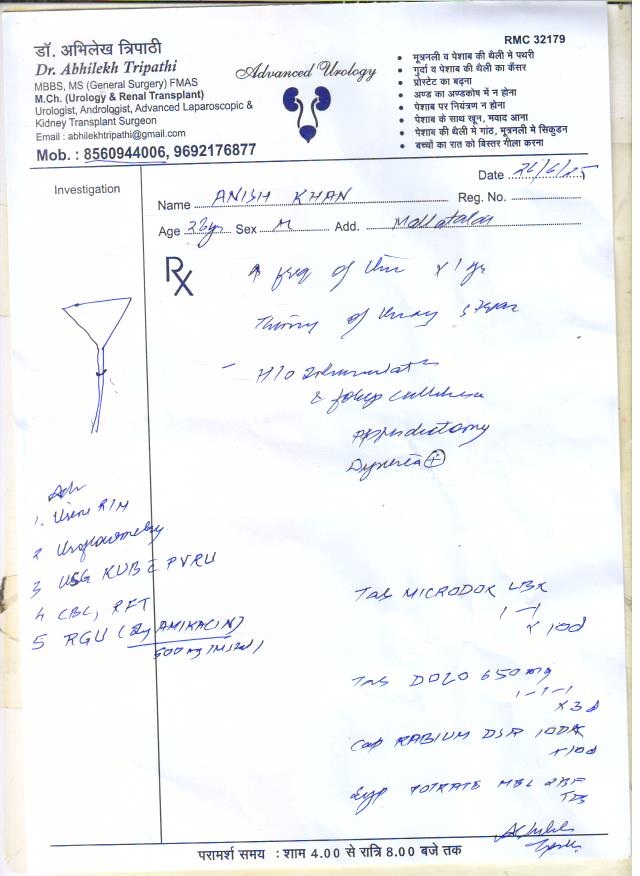 RMC 32179
डॉ. अभिलेख त्रिपाठी
Dr. Abhilekh Tripathi
MBBS, MS (General Surgery) FMAS
M.Ch. (Urology & Renal Transplant)
Urologist, Andrologist, Advanced Laparoscopic &
Kidney Transplant Surgeon
Email : abhilekhtripathi@gmail.com
Mob. : 8560944006, 9692176877
Advanced Urology
• मूत्रनली व पेशाब की थैली मे पथरी
• गुर्दा व पेशाब की थैली का कैंसर
• प्रोस्टेट का बढ़ना
• अण्ड का अण्डकोष में न होना
• पेशाब पर नियंत्रण न होना
• पेशाब के साथ खून, मवाद आना
• पेशाब की थैली मे गांठ, मूत्रनली मे सिकुडन
• बच्चों का रात को बिस्तर गीला करना
Investigation
Date 26/6/25
Name ANISH KHAN Reg. No.
Age 23yr Sex M Add. Mollatalai
Rx
↑ freq of Urine x 1 yr
Thinning of Urinary stream
- H/O
& foleys
Appendictomy
Dysuria +
Adv
1. Urine R/M
2 Uroflowmetry
3 USG KUB c PVRU
4 CBC, RFT
5 RGU (Inj AMIKACIN)
500 mg IM
Tab MICRODOX LBX
1 - 1
x 10d
Tab DOLO 650 mg
1 - 1 - 1
x 3d
Cap RABIUM DSR 1OD
x 10d
Syp POTRATE MB6 2
TDS
परामर्श समय : शाम 4.00 से रात्रि 8.00 बजे तक